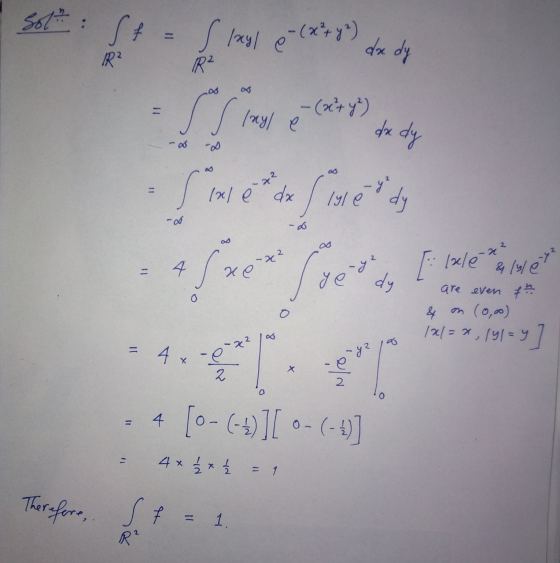 Solⁿ : ∫_{ℝ²} f = ∫_{ℝ²} |xy| e^{-(x²+y²)} dx dy
= ∫_{-∞}^{∞} ∫_{-∞}^{∞} |xy| e^{-(x²+y²)} dx dy
= ∫_{-∞}^{∞} |x| e^{-x²} dx ∫_{-∞}^{∞} |y| e^{-y²} dy
= 4 ∫_{0}^{∞} x e^{-x²} ∫_{0}^{∞} y e^{-y²} dy [∵ |x| e^{-x²} & |y| e^{-y²}
are even fⁿ
& on (0,∞)
|x| = x, |y| = y]
= 4 × -e^{-x²}/2 |_{0}^{∞} × -e^{-y²}/2 |_{0}^{∞}
= 4 [0 - (-1/2)] [0 - (-1/2)]
= 4 × 1/2 × 1/2 = 1
Therefore, ∫_{ℝ²} f = 1.